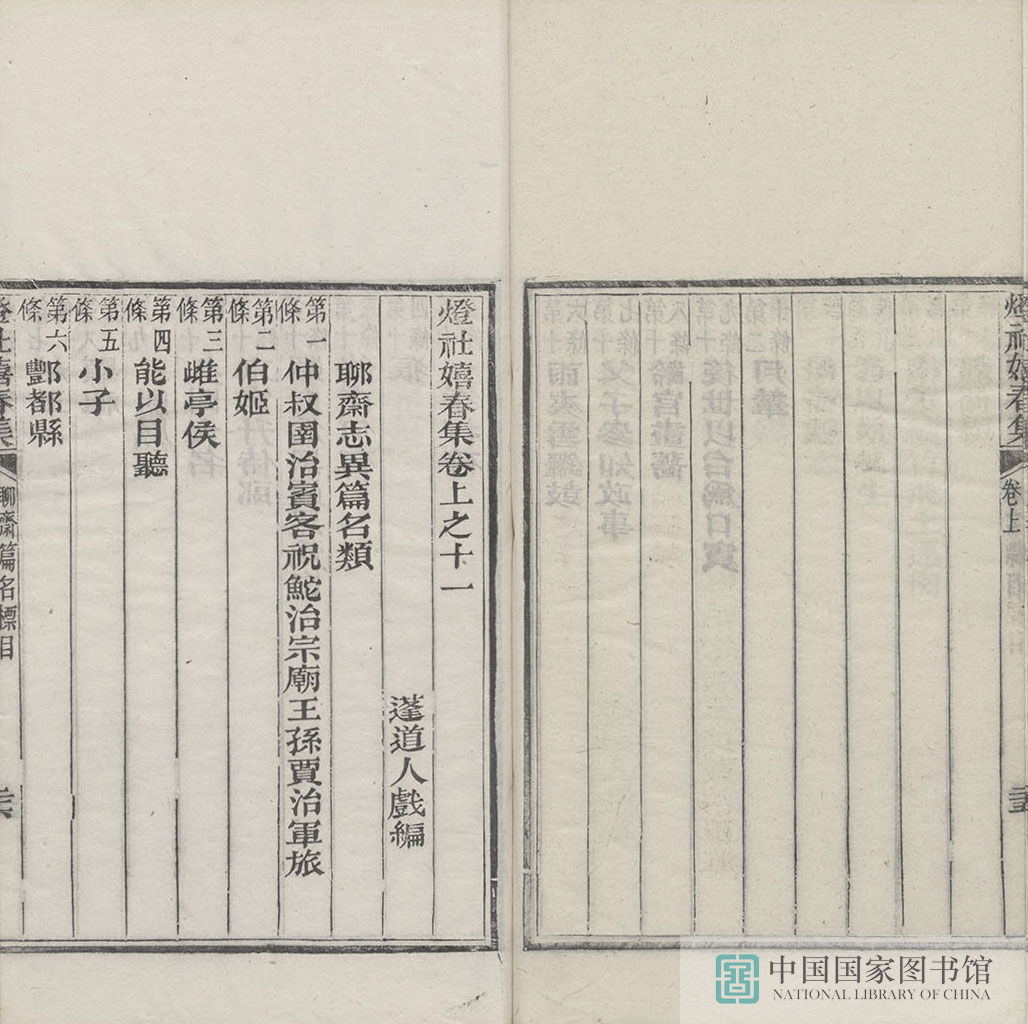 燈社嬉春集
卷上
燈社嬉春集卷上之十一
蓬道人戲編
聊齋志異篇名類
第一條 仲叔圉治賓客祝鮀治宗廟王孫賈治軍旅
第二條 伯姬
第三條 雎亭侯
第四條 能以目聽
第五條 小子
第六條 酆都縣
燈社嬉春集
聊齋篇名標目
中国国家图书馆
NATIONAL LIBRARY OF CHINA